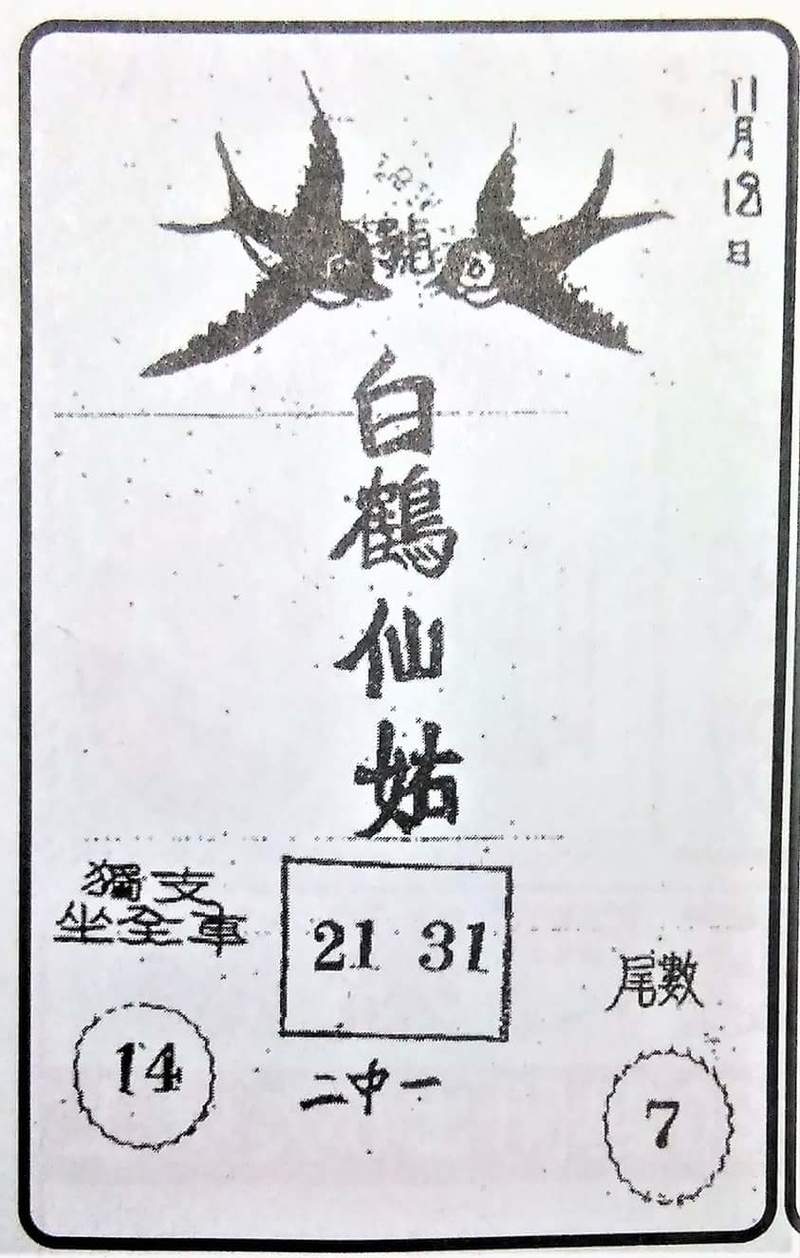 11月18日
白鶴仙姑
獨支
坐全車
14
21 31
二中一
尾數
7